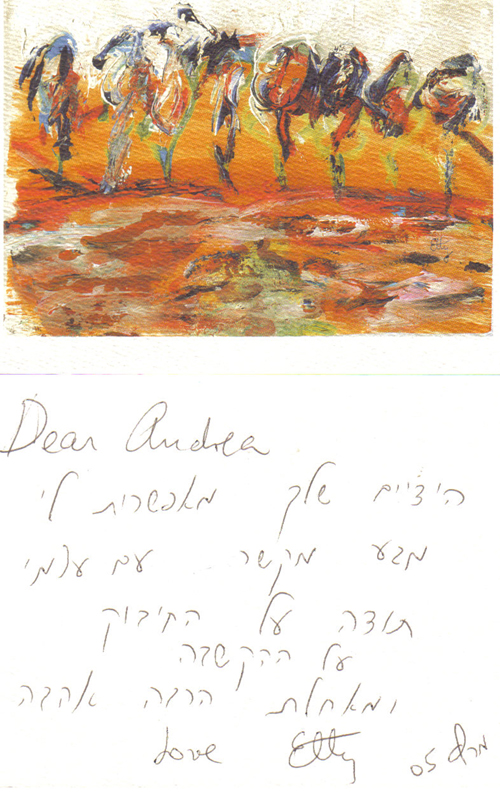 Dear Andrea
הידיים שלך מאפשרות לי
מגע מקשר עם עצמי
תודה על החיבוק
על ההקשבה
ומאחלת הרבה אהבה
Love Etty 05